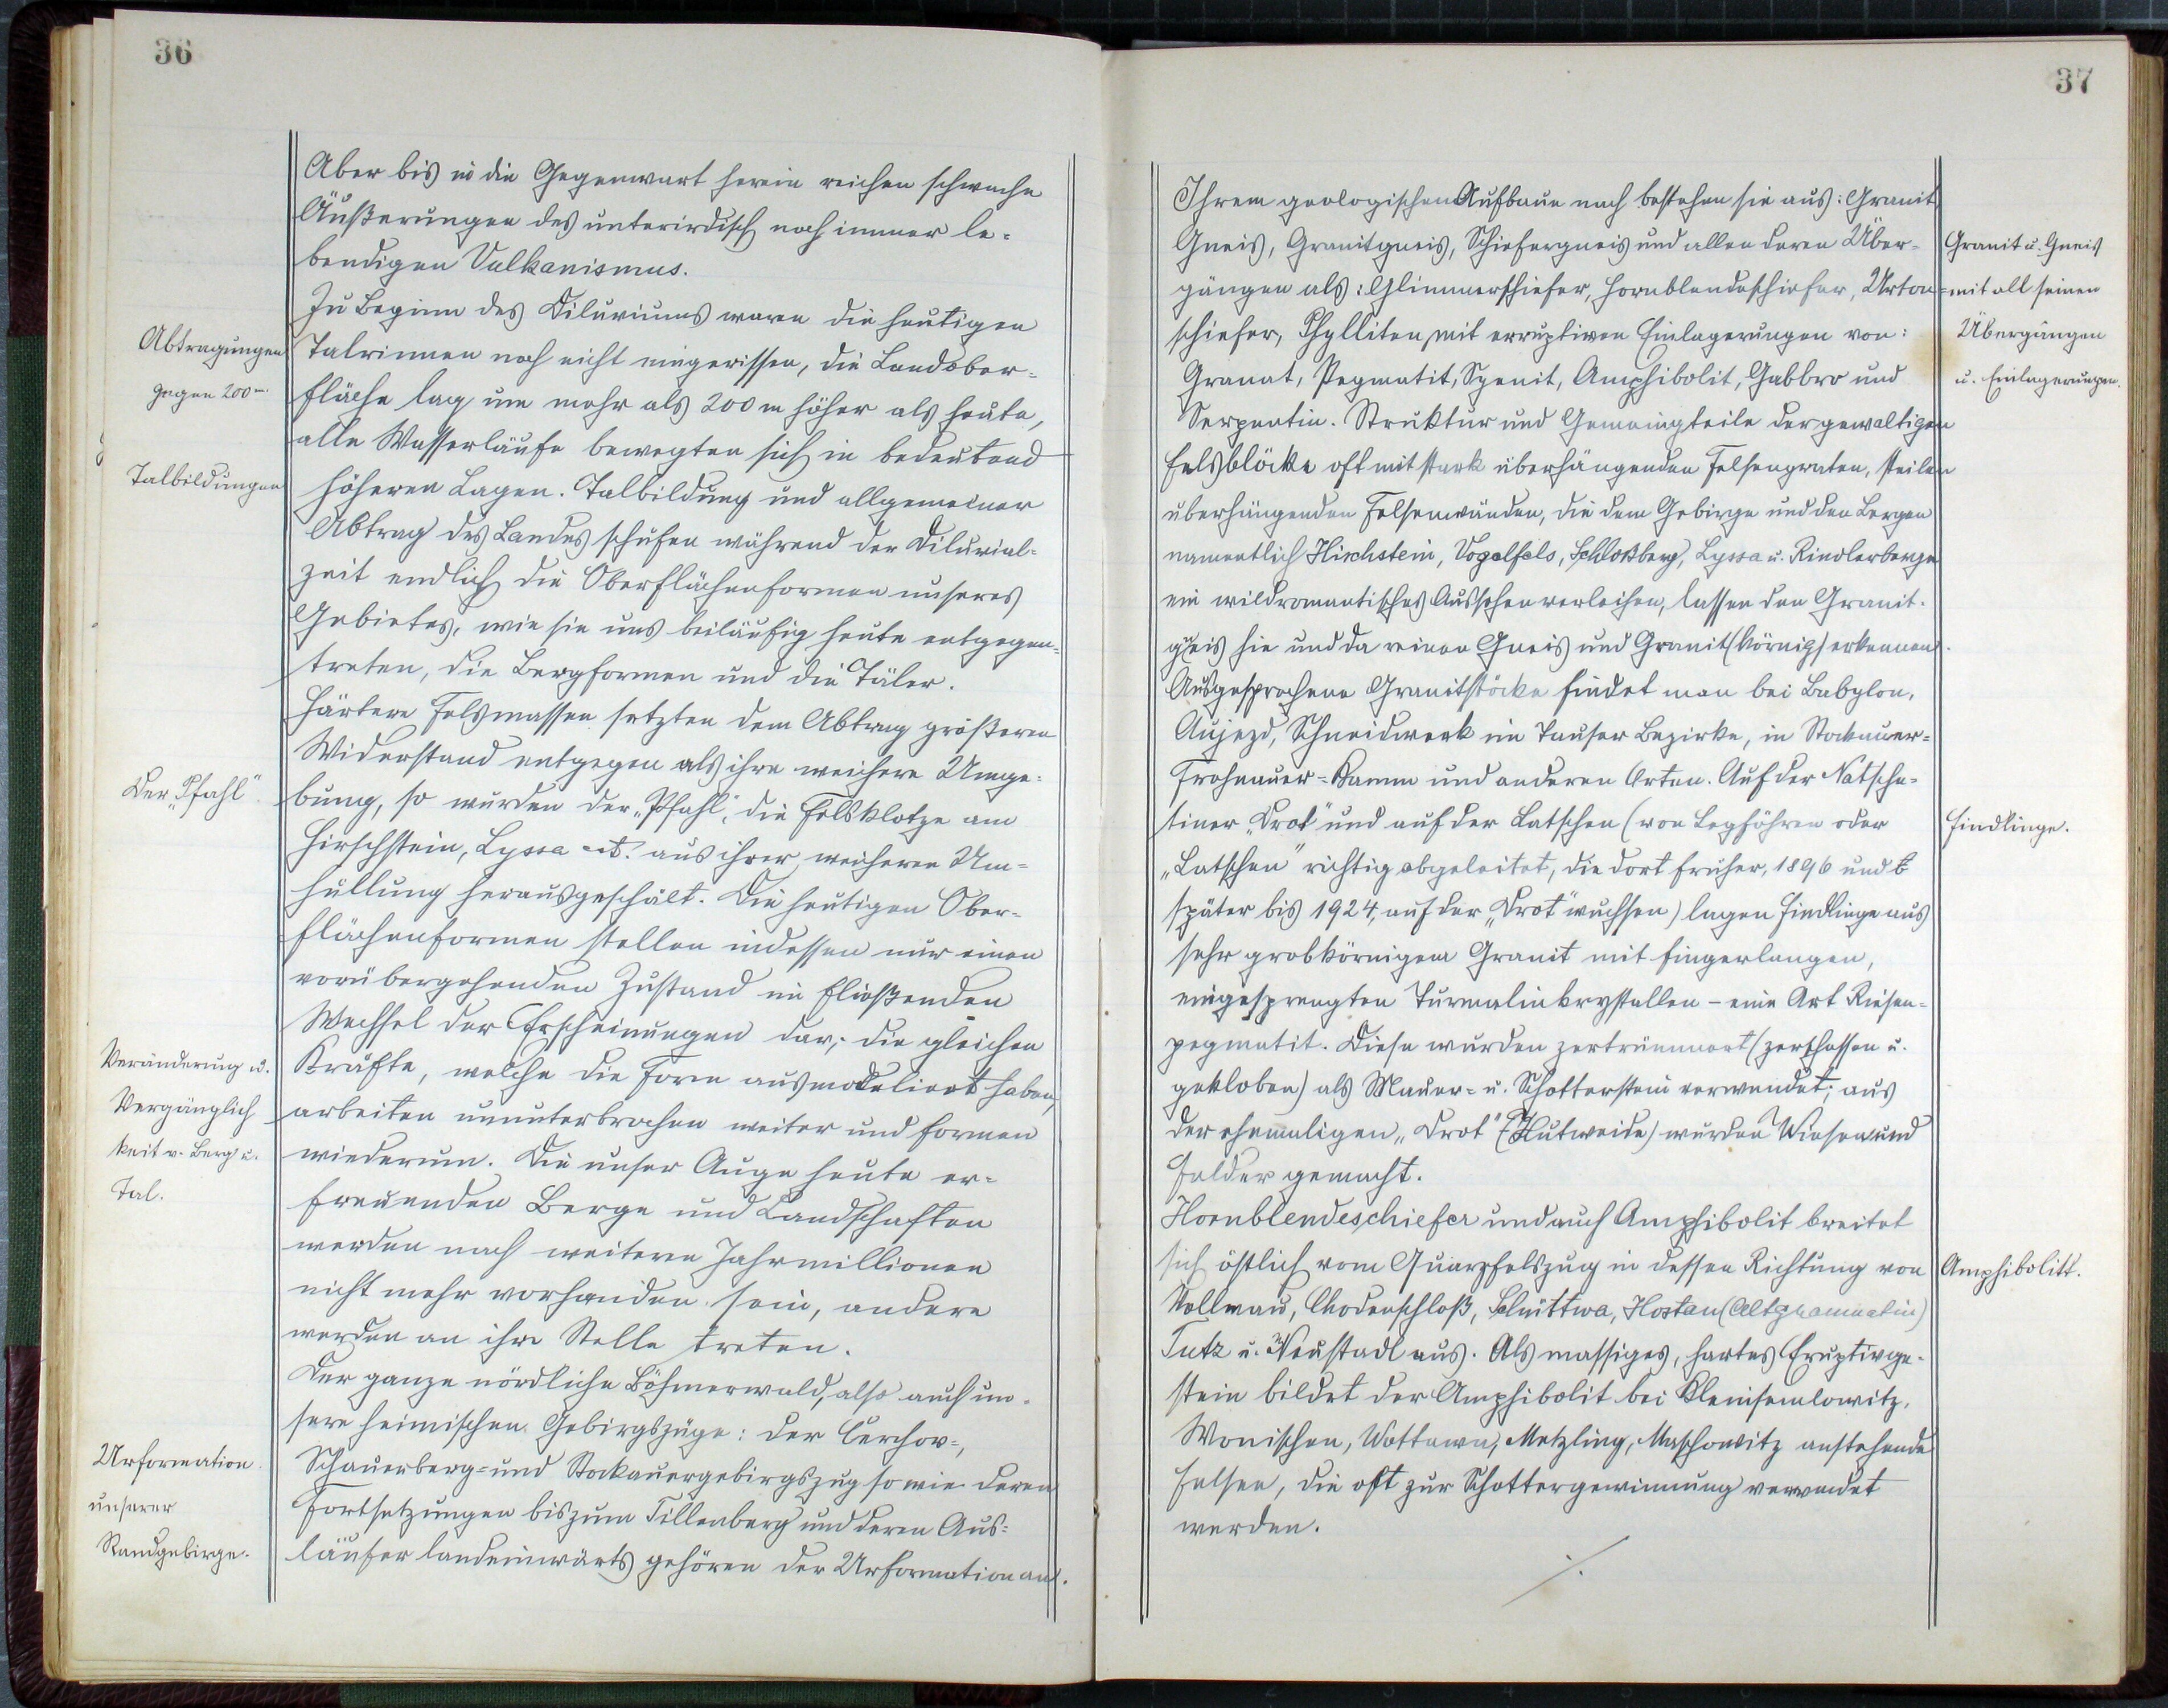 36
Aber bis in die Gegenwart herein reichen schwache
Äußerungen des unterirdisch noch immer le-
bendigen Vulkanismus.
Zu Beginn des Diluviums waren die heutigen
Abtragungen
Talrinnen noch nicht eingerissen, die Landober-
gegen 200 m.
fläche lag um mehr als 200 m höher als heute,
alle Wasserläufe bewegten sich in bedeutend
Talbildungen
höheren Lagen. Talbildung und allgemeiner
Abtrag des Landes schufen während der Diluvial-
zeit endlich die Oberflächenformen unseres
Gebietes, wie sie uns beiläufig heute entgegen-
treten, die Bergformen und die Täler.
Härtere Felsmassen setzten dem Abtrag größeren
Widerstand entgegen als ihre weichere Umge-
Der „Pfahl".
bung, so wurden der „Pfahl", die Felsklotze am
Hirschstein, Lyssa ect. aus ihrer weicheren Um-
hüllung herausgeschält. Die heutigen Ober-
flächenformen stellen indessen nur einen
vorübergehenden Zustand im fließenden
Wechsel der Erscheinungen dar; die gleichen
Veränderung u.
Kräfte, welche die Form ausmodeliert haben,
Vergänglich
arbeiten ununterbrochen weiter und formen
keit v. Berg u.
wiederum. Die unser Auge heute er-
Tal.
freuenden Berge und Landschaften
werden nach weiteren Jahrmillionen
nicht mehr vorhanden sein, andere
werden an ihre Stelle treten.
Der ganze nördliche Böhmerwald, also auch un-
sere heimischen Gebirgszüge: der Cerchov-,
Urformation
Schauerberg- und Stockauergebirgszug so wie deren
unserer
Fortsetzungen bis zum Tillenberg und deren Aus-
Randgebirge.
läufer landeinwärts gehören der Urformation an.
37
Ihrem geologischen Aufbaue nach bestehen sie aus: Granit,
Gneis, Granitgneis, Schiefergneis und allen deren Über-
Granit u. Gneis
gängen als: Glimmerschiefer, Hornblendeschiefer, Urton-
mit all seinen
schiefer, Phylliten, mit erruptiven Einlagerungen von:
Übergängen
Granat, Pegmatit, Syenit, Amphibolit, Gabbro und
u. Einlagerungen.
Serpentin. Struktur und Gemeingteile der gewaltigen
Felsblöcke oft mit stark überhängenden Felsengraten, steilen
überhängenden Felsenwänden, die dem Gebirge und den Bergen
namentlich Hirschstein, Vogelfels, Schloßberg, Lyssa u. Rindlerberge
ein wildromantisches Aussehen verleihen, lassen den Granit-
gneis hie und da reinen Gneis und Granit (körnig) erkennen.
Ausgesprochene Granitstöcke findet man bei Babylon,
Aujezd, Schneidwerk im Tauser Bezirke, in Stockauer-
Frohnauer-Kamm und anderen Orten. Auf der Natsche-
tiner „Drot" und auf der Latschen (von Legföhren oder
Findlinge.
„Latschen" richtig abgeleitet, die dort früher, 1896 und
später bis 1924, auf der „Drot" wuchsen) lagen Findlinge aus
sehr grobkörnigem Granit mit fingerlangen,
eingesprengten Turmalinkrystallen – eine Art Riesen-
pegmatit. Diese wurden zertrümmert (zerschossen u.
gekloben) als Mauer- u. Schotterstein verwendet; aus
der ehemaligen „Drot" (Hutweide) wurden Wiesen und
Felder gemacht.
Hornblendeschiefer und auch Amphibolit breitet
sich östlich vom Quarzfelszug in dessen Richtung von
Amphibolitt.
Vollmau, Chodenschloß, Schüttwa, Hostau (Altgramatin)
Tutz u. Neustadl aus. Als massiges, hartes Eruptivge-
stein bildet der Amphibolit bei Klenisemlowitz,
Wonischen, Wottawa, Metzling, Maschowitz anstehende
Felsen, die oft zur Schottergewinnung verwendet
werden.
./.